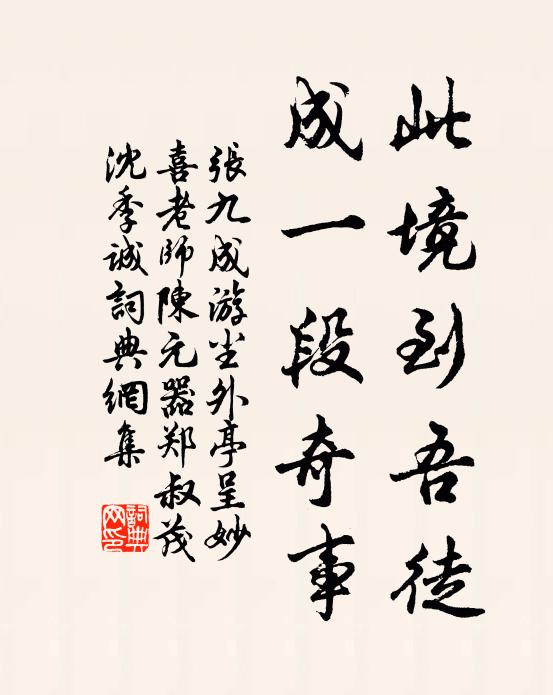 此境到吾徒
成一段奇事
張九成游尘外亭呈妙
喜老師陳元器郑叔茂
沈季诚詞典網集
詞典网印